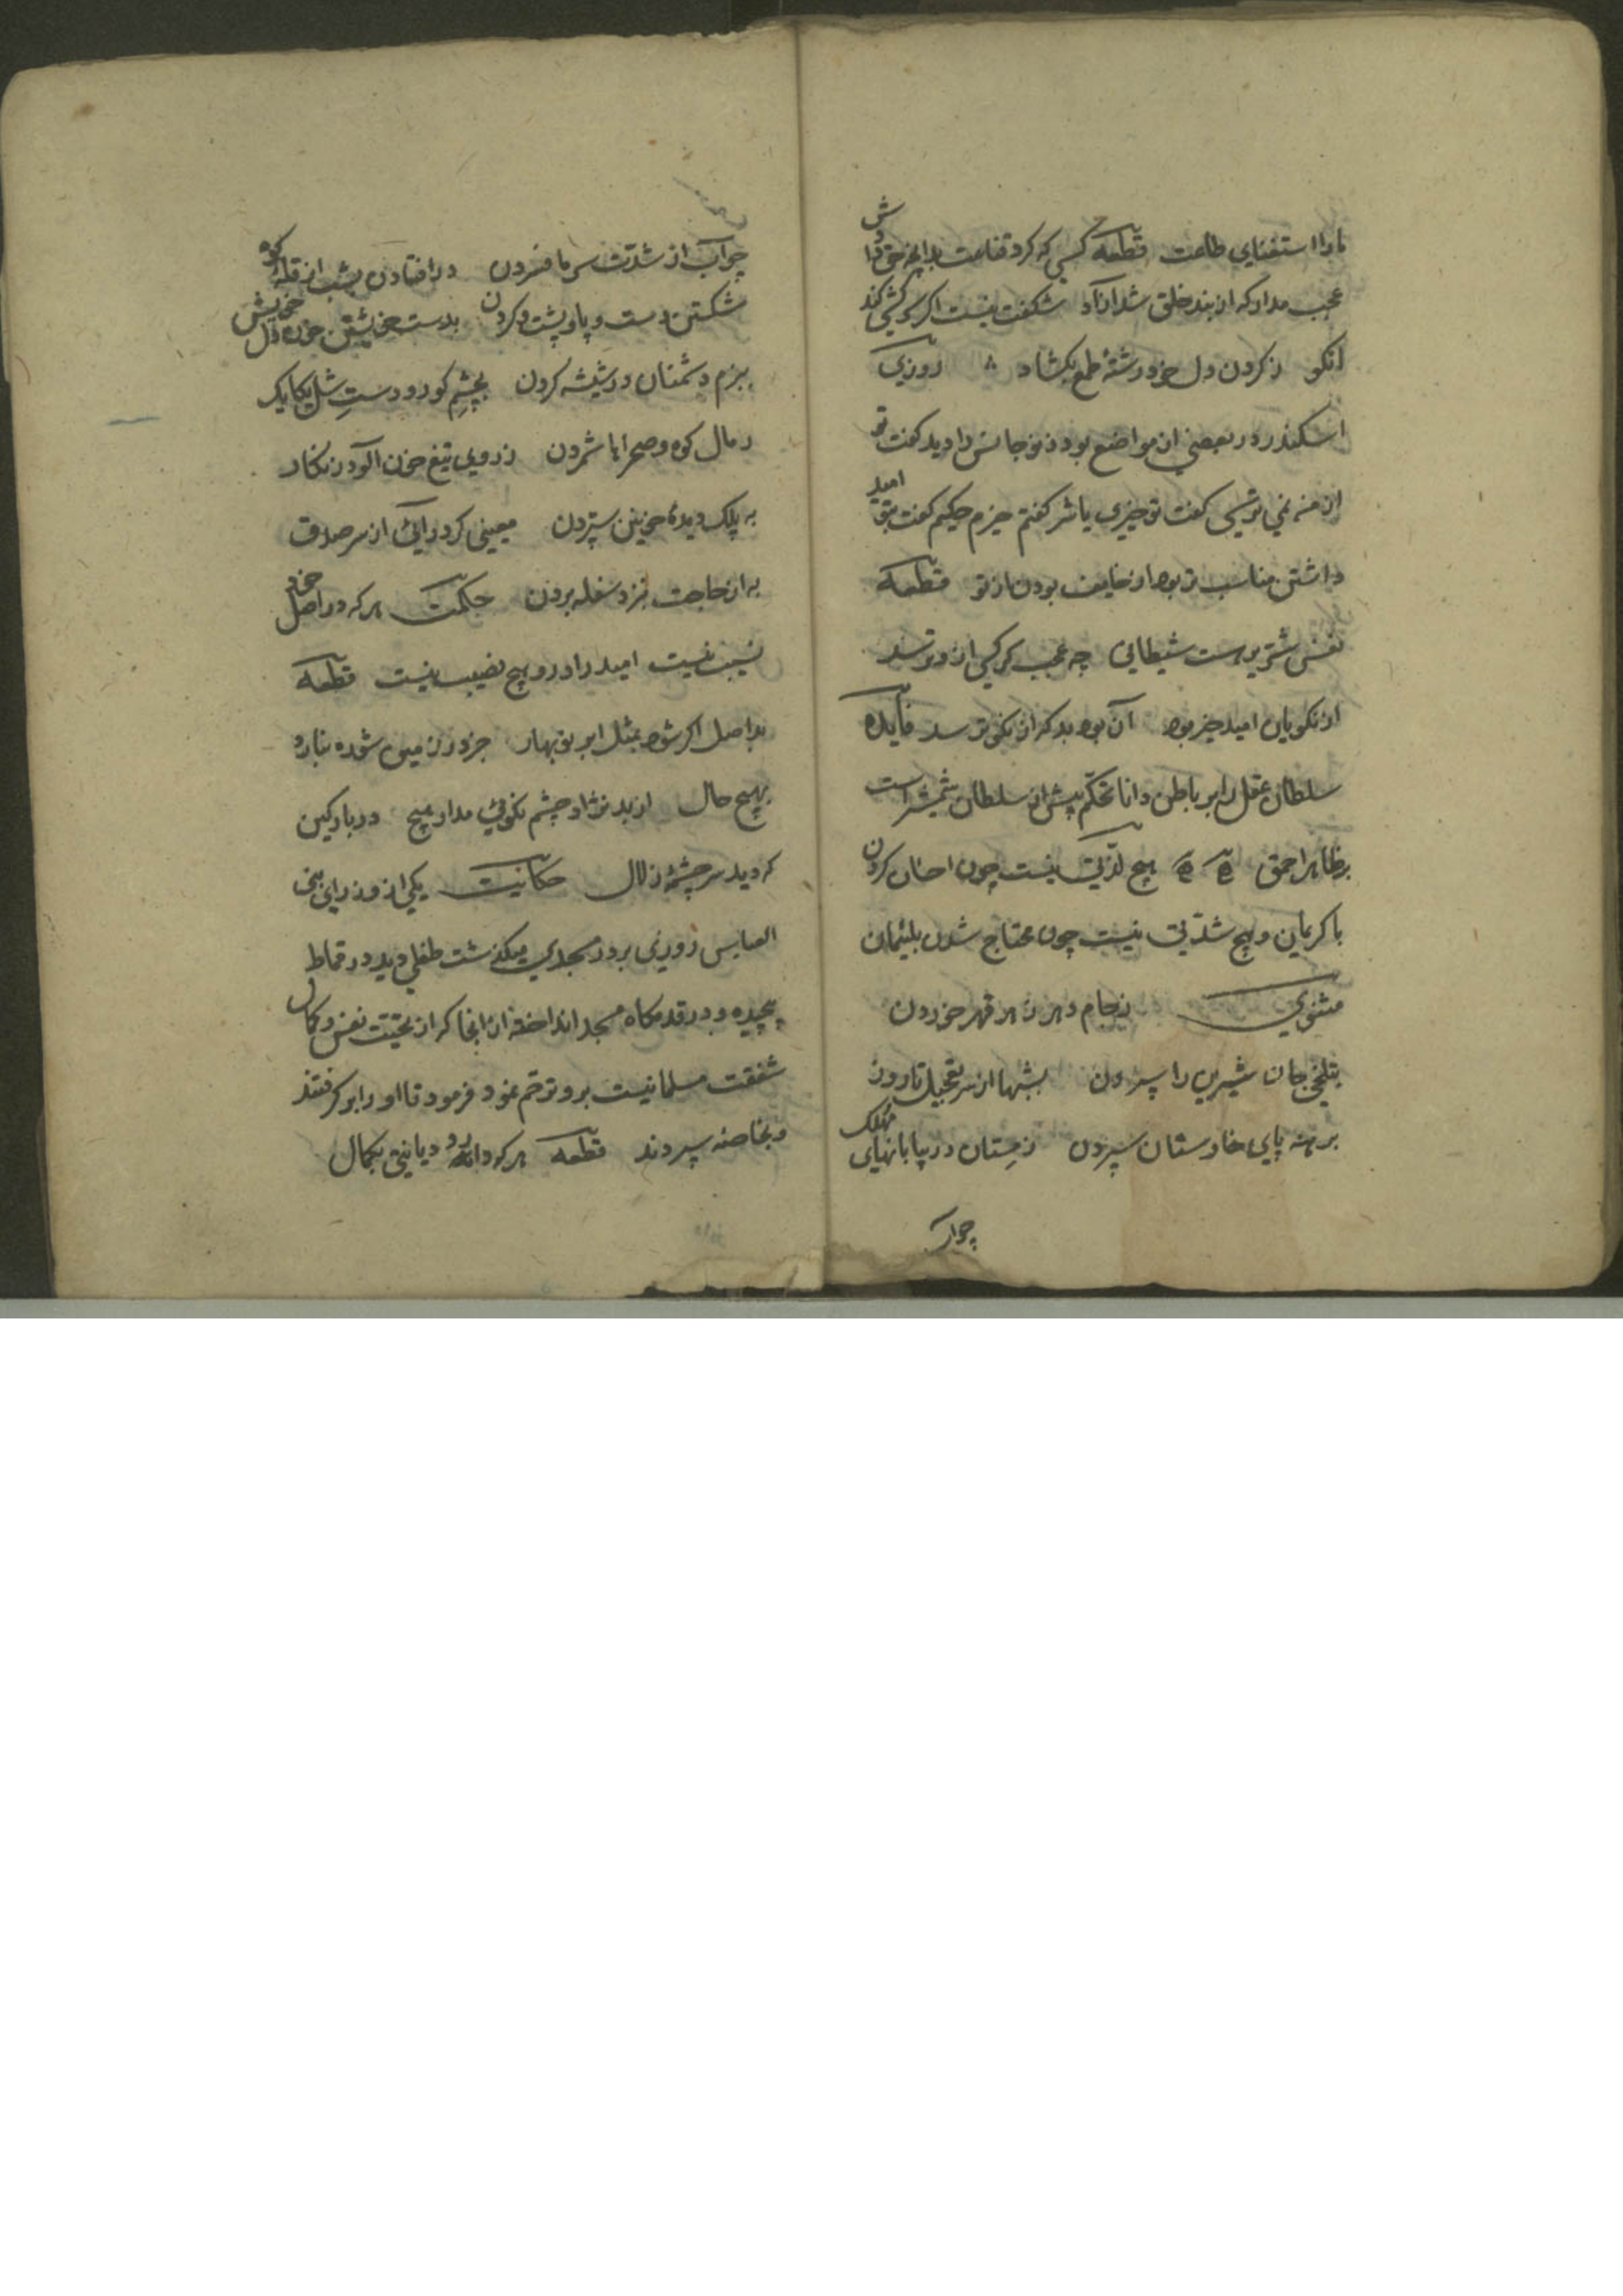 ما را استغنای طاعت قطعه کسی که کرد قناعت بدانچه حق دادش
عجب مدار که از بند خلق شد آزاد شکفت نیست اگر سرکشی کند
انکو ز کردن دل خود رشتهٔ طمع بکشاد روزی
اسکندر در بعضی از مواضع بود دیوجانس را دید گفت تو
از من نمی ترسی گفت تو خیری یا شر گفتم خیرم حکیم گفت بتو امید
داشتن مناسب تر بود از خایف بودن از تو قطعه
نفس شریرست شیطانی چه عجب کر کسی ازو ترسد
از نکویان امید خیر بود آن بود بد که از نکو ترسد فایده
سلطان عقل را بر باطن دانا تحکم بیش از سلطان شمشیراست
بر ظاهر احمق هیچ لذتی نیست چون احسان کردن
با کریمان و هیچ شدتی نیست چون محتاج شدن بلئیمان
مثنوی ز جام دهر زهر قهر خوردن
بتلخی جان شیرین را سپردن بشبها از سر تعجیل تا روز
برهنه پای خارستان سپردن زمستان در بیابانهای مهلک
چو آب
چو آب از شدت سرما فسردن در افتادن بشب از قلهٔ کوه
شکستن دست و پا و پشت و کردن بدست خویشتن خون دل خویش
ببزم دشمنان در شیشه کردن بچشم کور و دست شل یکایک
رمال کوه و صحرا را شمردن ز روی تیغ خون آلود زنکار
به پلک دیدهٔ خونین ستردن معینی کرد رایی از سر صدق
به از حاجت بنزد سفله بردن حکمت هر که در اصل خود
نسیب نیست امید را درو هیچ نصیب نیست قطعه
بد اصل اگر شود بمثل ابر نوبهار جز در زمین شوده نبارد
بهیچ حال از بد نژاد چشم نکوئی مدار هیچ در بارکین
که دید سر چشمهٔ زلال حکایت یکی از وزرای بنی
العباس روزی بر در مسجدی میگذشت طفلی دید در قماط
پیچیده و در قدمکاه مسجد انداخته از انجا که از تحیت نفس و کمال
شفقت مسلمانیست برو ترحم نمود فرمود تا او را بر کرفتند
و بخاصنه سپردند قطعه هر که دارد رو دیانتی بکمال